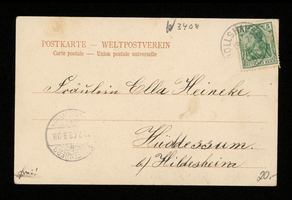 W 3408
POSTKARTE – WELTPOSTVEREIN
Carte postale — Union postale universelle
Fräulein Ella Heineke,
Hüddessum.
b/ Hildesheim
frei!
20,-